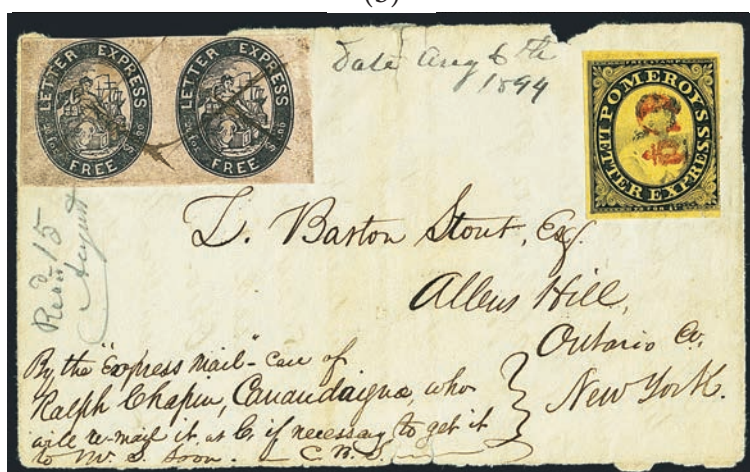 (b)
LETTER EXPRESS
FREE
LETTER EXPRESS
FREE
Date Aug 6th
1844
POMEROY'S
LETTER EXPRESS
Rec'd 15
August
L. Barton Stout, Esq.
Allens Hill,
Ontario Co,
New York.
By the "Express Mail" - care of
Ralph Chapin, Canandaigua, who
will re-mail it, at C, if necessary, to get it
to Mr. S. soon. - C. B. S.